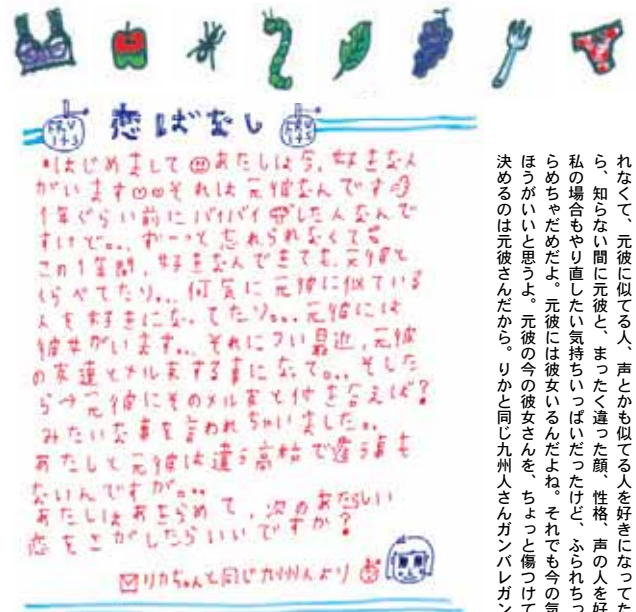 FRUITS 恋ばなし FRUITS
・はじめまして あたしは今、好きな人
がいますそれは元彼なんです
1年ぐらい前にバイバイした人なんで
すけど。。、ずーっと忘れられなくて
この1年間、好きな人できても、元彼と
くらべてたり。。、何気に元彼に似ている
人を好きになってたり。。、元彼には
彼女がいます。。それについ最近、元彼
の友達とメルするに事になって。。、そした
ら→元彼にそのメル友と付き合えば?
みたいな事を言われちゃいました。。
あたしと元彼は違う高校で違う
ないんですが。。
あたしはあきらめて、次のあたらしい
恋をさがしたらいいですか?
りかちゃんと同じ九州人より
れなくて、元彼に似てる人、声とかも似てる人を好きになってた
ら、知らない間に元彼と、まったく違った顔、性格、声の人を好
私の場合もやり直したい気持ちいっぱいだったけど、ふられちっ
らめちゃだめだよ。元彼には彼女いるんだよね。それでも今の気
ほうがいいと思うよ。元彼の今の彼女さんを、ちょっと傷つけて
決めるのは元彼さんだから。りかと同じ九州人さんガンバレガン